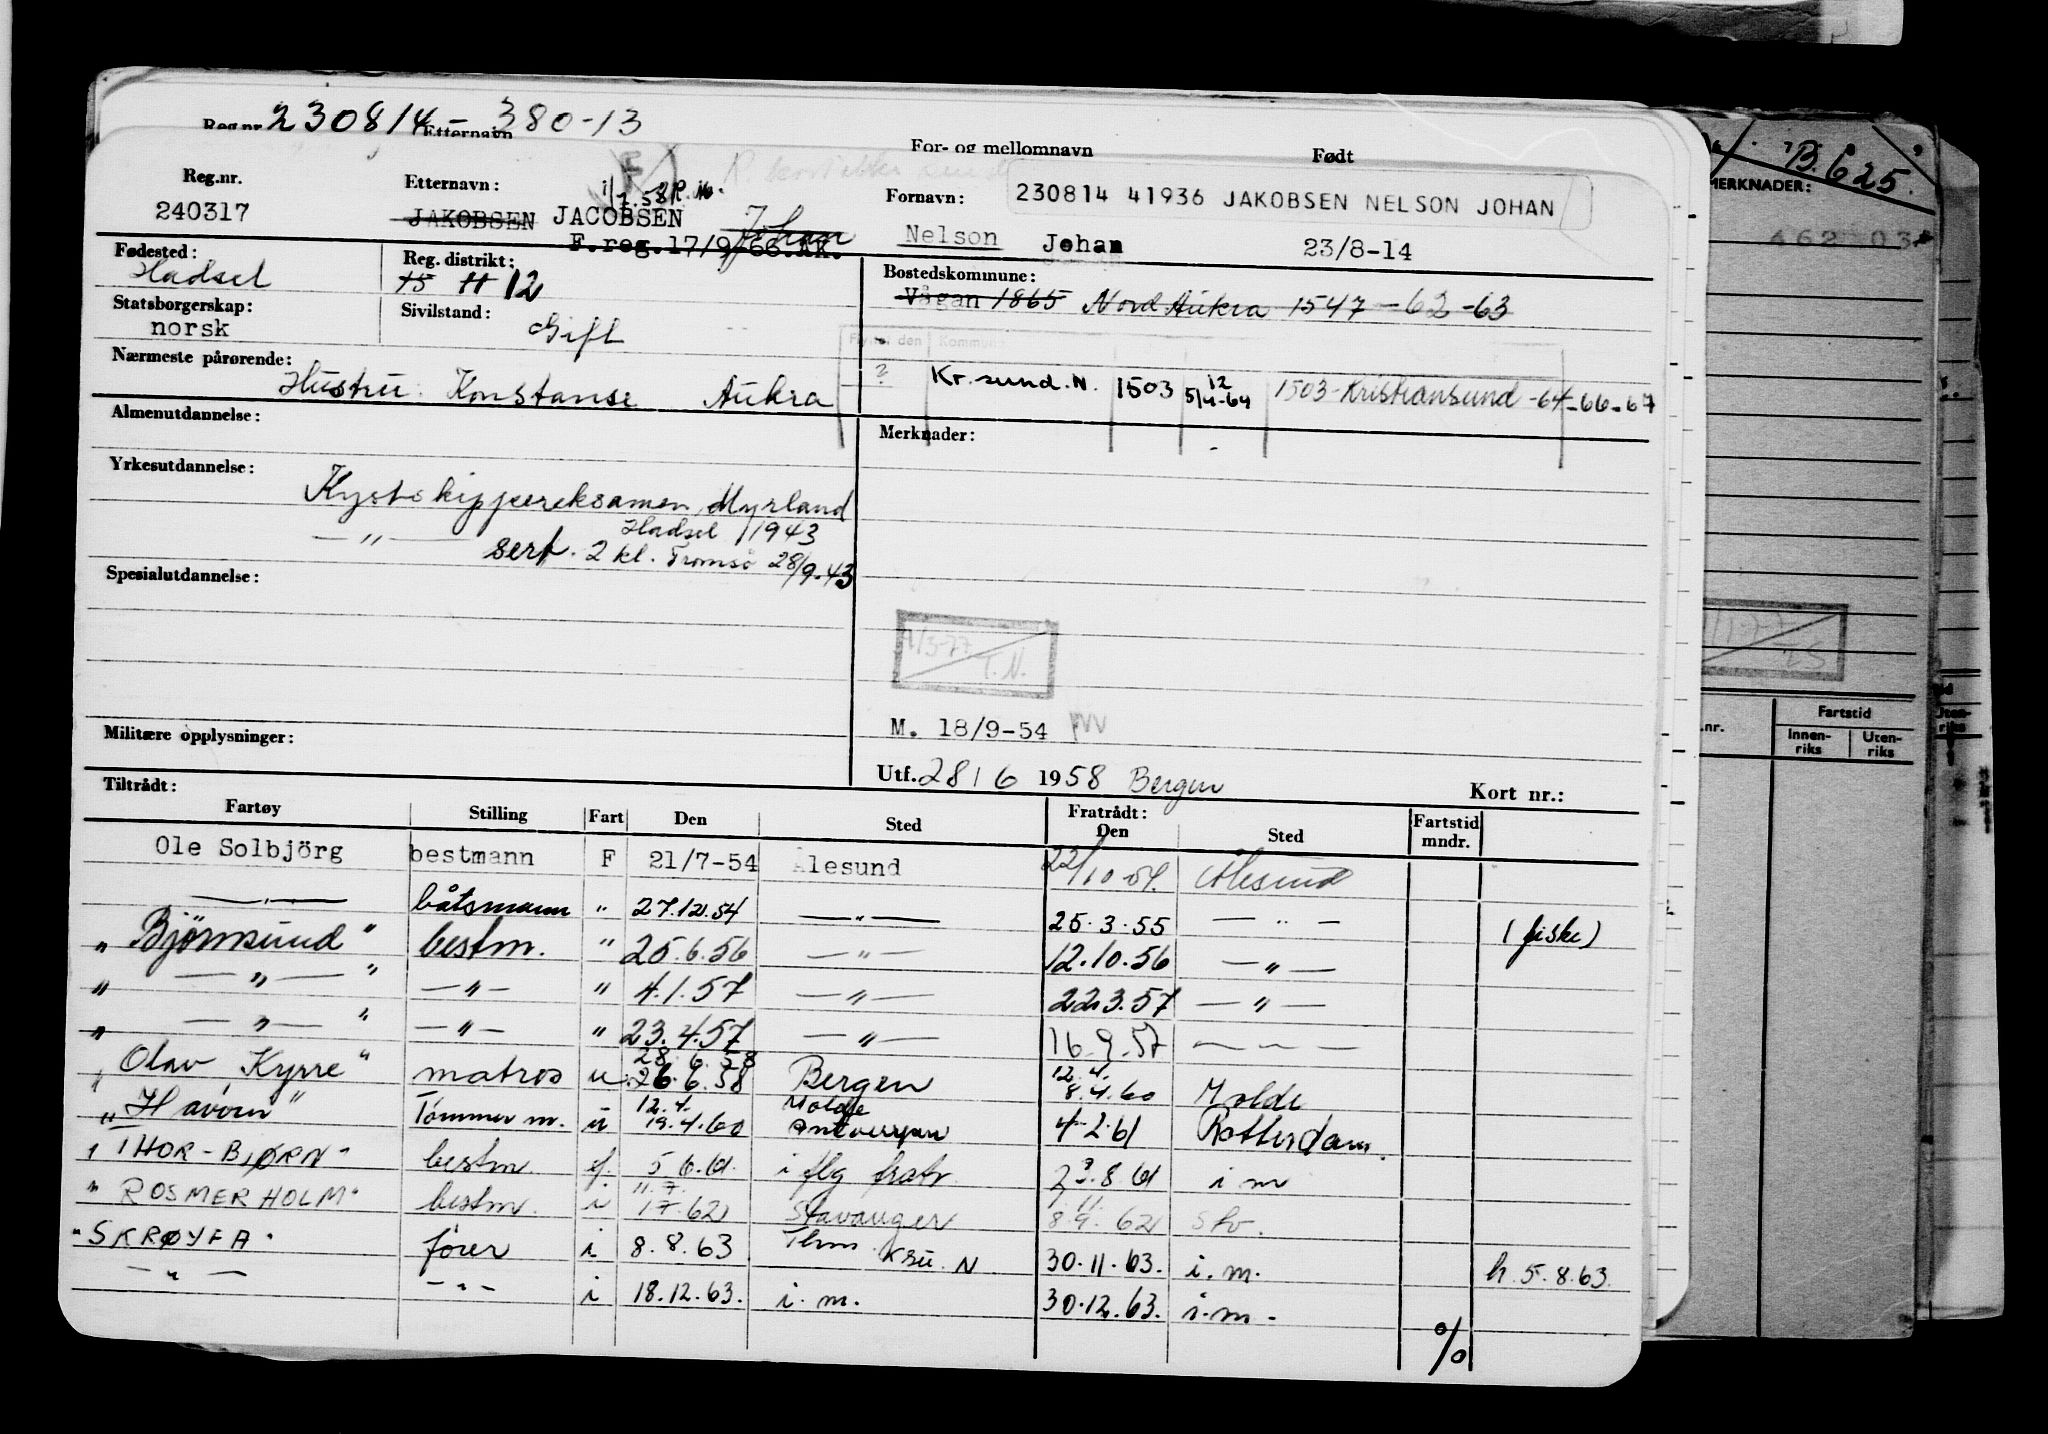 Reg.nr. 230814 - 380-13
Etternavn For- og mellomnavn Født
Reg.nr. Etternavn: Fornavn: 230814 41936 JAKOBSEN NELSON JOHAN
240317 JAKOBSEN JACOBSEN Johan Nelson Johan 23/8-14
F.reg.17/9-66.AK.
Fødested: Hadsel Reg. distrikt: H 12 Bostedskommune: Vågan 1865 Nord Aukra 1547 - 62 - 63
Statsborgerskap: norsk Sivilstand: Gift
Flyttet den Kommune
Nærmeste pårørende: Hustru: Konstanse Aukra
? Kr.sund.N. 1503 5/12-64 1503-Kristiansund -64-66-67
Almenutdannelse: Merknader:
Yrkesutdannelse: Kystskippereksamen, Myrland
Hadsel 1943
— " — sert. 2 kl. Tromsö 28/9.43
Spesialutdannelse:
T.N.
M. 18/9-54
Militære opplysninger:
Utf. 28/6 1958 Bergen Kort nr.:
Tiltrådt: Fratrådt:
Fartøy Stilling Fart Den Sted Den Sted Fartstid mndr.
Ole Solbjörg bestmann F 21/7-54 Ålesund 22/10-54. Ålesund
— " — båtsmann " 27.12.54 — " — 25.3.55 — " — (fiske)
"Bjørnsund" bestm. " 25.6.56 — " — 12.10.56 — " —
" — " — " — " — " 4.1.57 — " — 22.3.57 — " —
" — " — " — " — " 23.4.57 — " — 16.9.57 — " —
28.6.58 12.4.
"Olav Kyrre" matros u 26.6.58 Bergen 8.4.60 Molde
12.4. Molde
"Havörn" Tömmerm. u 19.4.60 Antwerpen 4-2-61 Rotterdam.
"THOR-BJØRN" bestm. f. 5.6.61. i flg fratr. 23.8.61 i m
11.7. 1.11.
"ROSMERHOLM" bestm. i 17.62 Stavanger 8.9.62 Stv.
"SKRØYFA" fører i 8.8.63 Thm Ksu. N 30.11.63. i.m. h. 5.8.63.
— " — — " — i 18.12.63. i.m. 30.12.63. i.m.
%
B.625.
MERKNADER:
Fartstid
.nr. Innenriks Utenriks